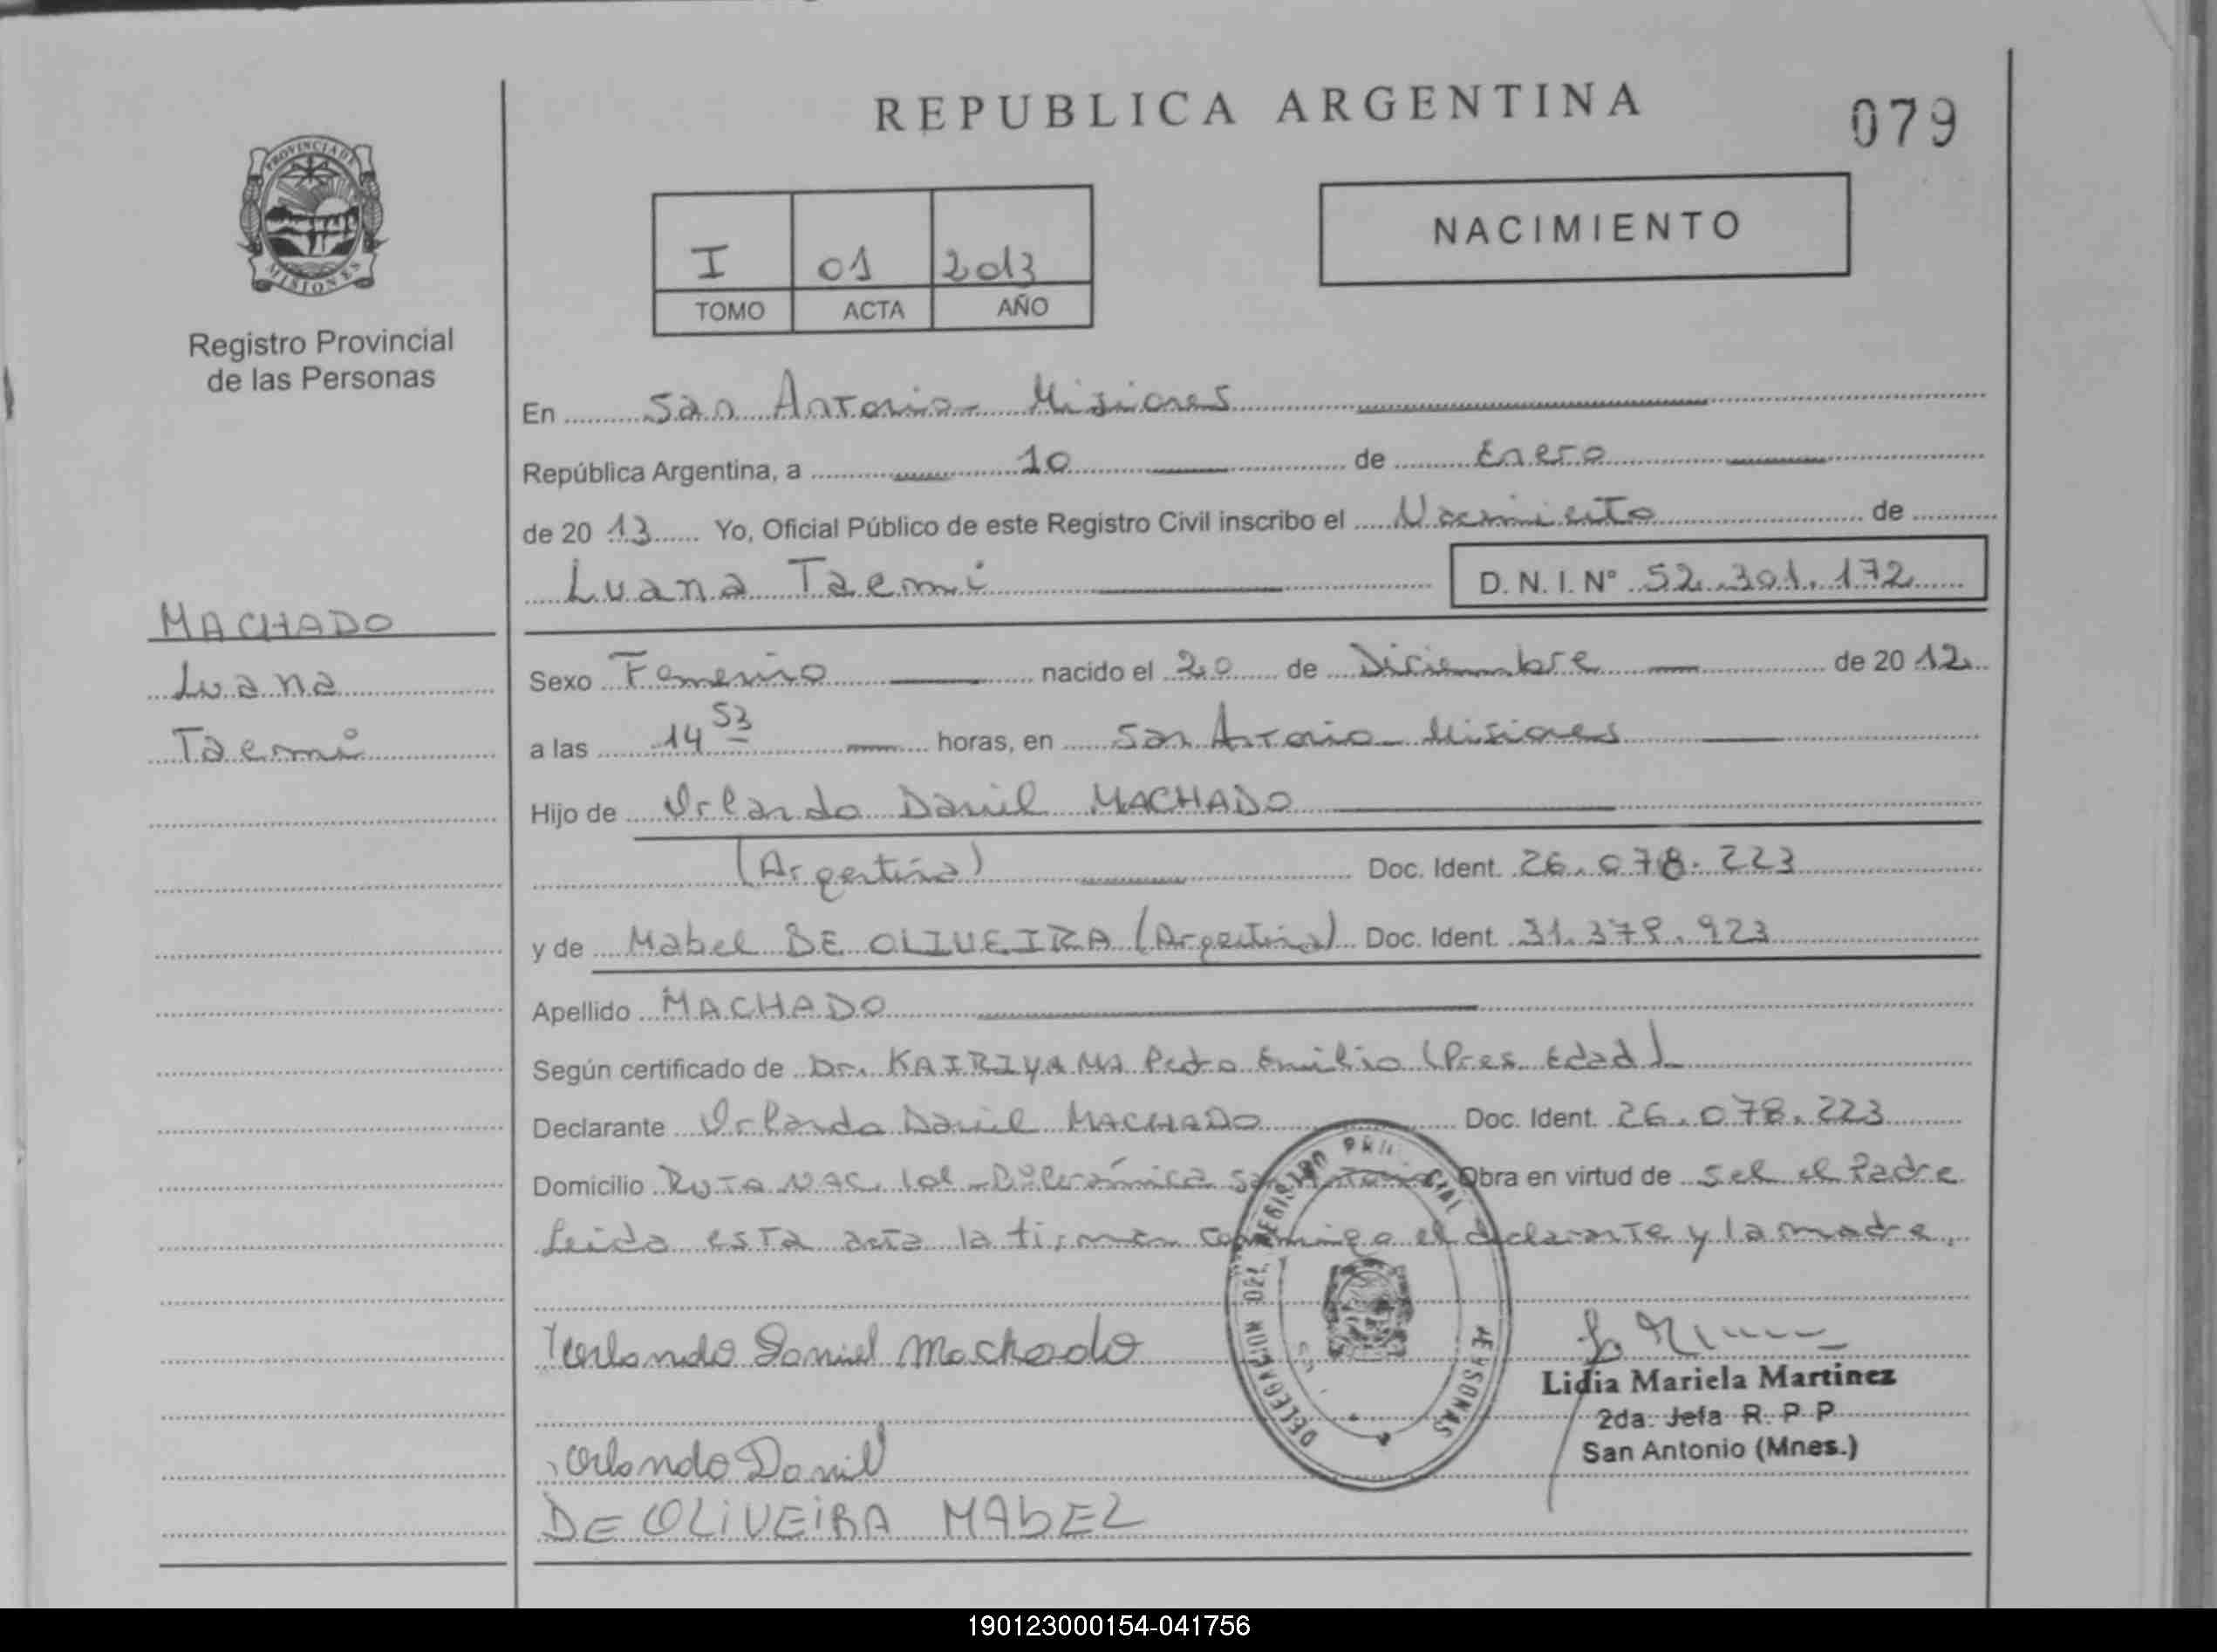 REPUBLICA ARGENTINA
079
PROVINCIA DE
MISIONES
Registro Provincial
de las Personas
I 01 2013
TOMO ACTA AÑO
NACIMIENTO
En San Antonio - Misiones
República Argentina, a 10 de Enero
de 20 13 Yo, Oficial Público de este Registro Civil inscribo el Nacimiento de
Luana Taemi D. N. I. Nº 52.301.172
MACHADO
Luana
Taemi
Sexo Femenino nacido el 20 de Diciembre de 20 12
a las 14 53 horas, en San Antonio - Misiones
Hijo de Orlando Daniel MACHADO
(Argentina) Doc. Ident. 26.078.223
y de Mabel DE OLIVEIRA (Argentina) Doc. Ident. 31.379.923
Apellido MACHADO
Según certificado de Dr. KAIRIYAMA Pedro Emilio (Pres. Edad)
Declarante Orlando Daniel MACHADO Doc. Ident. 26.078.223
Domicilio RUTA NAC. 101 - San Antonio Obra en virtud de ser el Padre
Leida esta acta la firman conmigo el declarante y la madre.
Orlando Daniel Machado
Orlando Daniel
DE OLIVEIRA MABEL
DELEGACION DEL REGISTRO PERSONAS
Lidia Mariela Martinez
2da. Jefa R. P. P.
San Antonio (Mnes.)
190123000154-041756